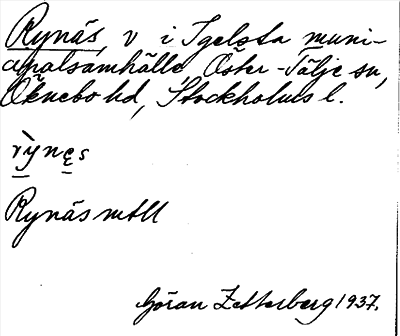 Rynäs, v i Igelsta muni-
cipalsamhälle, Öster-Tälje sn,
Öknebo hd, Stockholms l.
rỳnęs
Rynäs mtll
Göran Zetterberg 1937.